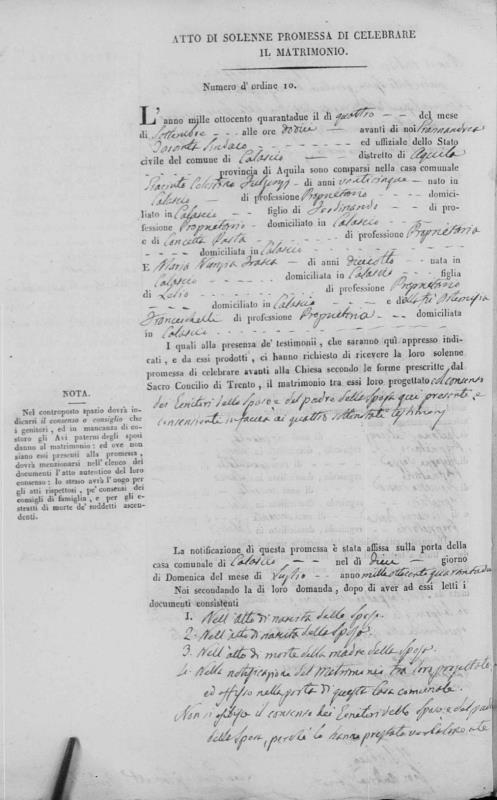 ATTO DI SOLENNE PROMESSA DI CELEBRARE
IL MATRIMONIO.
Numero d' ordine 10.
L'anno mille ottocento quarantadue il dì quattro - - del mese
di Settembre - - - alle ore dodici - avanti di noi
Sindaco - - - ed uffiziale dello Stato
civile del comune di Calascio - distretto di Aquila
- - - provincia di Aquila sono comparsi nella casa comunale
Giacinto Celestino - di anni venticinque - nato in
Calascio - - di professione Proprietario - - domici-
liato in Calascio - - figlio di Ferdinando - - di pro-
fessione Proprietario - domiciliato in Calascio - -
e di Concetta - - - di professione Proprietaria
- - - - domiciliata in Calascio - -
E Maria Nunzia Frasca - di anni dieciotto - - nata in
Calascio - - - domiciliata in Calascio - figlia
di Lelio - - - - - di professione Proprietario
- - - domiciliato in Calascio - - e di
Franceschelli di professione Proprietaria - - domiciliata
in Calascio - -
I quali alla presenza de' testimonii, che saranno quì appresso indi-
cati, e da essi prodotti, ci hanno richiesto di ricevere la loro solenne
promessa di celebrare avanti alla Chiesa secondo le forme prescritte dal
Sacro Concilio di Trento, il matrimonio tra essi loro progettato col consenso
dei Genitori dello Sposo e del padre della Sposa qui presenti e
consenzienti in faccia ai quattro sottonotati testimonj
NOTA.
Nel controposto spazio dovrà in-
dicarsi il consenso o consiglio che
i genitori, ed in mancanza di co-
storo gli Avi paterni degli sposi
danno al matrimonio: ed ove non
siano essi presenti alla promessa,
dovrà menzionarsi nell'elenco dei
documenti l'atto autentico del loro
consenso: lo stesso avrà l'uogo per
gli atti rispettosi, pe' consensi dei
consigli di famiglia, e per gli e-
stratti di morte de' suddetti ascen-
denti.
La notificazione di questa promessa è stata affissa sulla porta della
casa comunale di Calascio - - nel dì dieci - giorno
di Domenica del mese di Luglio - - anno mille ottocento quarantadue
Noi secondando la di loro domanda, dopo di aver ad essi letti i
documenti consistenti
1. Nell'atto di nascita dello Sposo.
2. Nell'atto di nascita della Sposa.
3. Nell'atto di morte della madre della Sposa.
4. Nella notificazione del Matrimonio tra loro progettato
ed affisso nella porta di questa Casa comunale.
Non si il consenso dei Genitori dello Sposo e del padre
della Sposa, perchè lo hanno prestato verbalmente